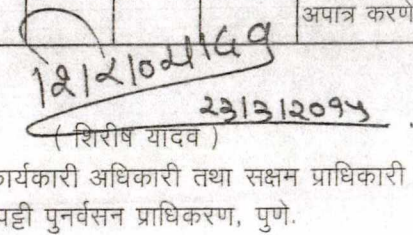 अपात्र करणे
शि২০यादव
२३।३।२०१५
( शिरीष यादव )
कार्यकारी अधिकारी तथा सक्षम प्राधिकारी
पट्टी पुनर्वसन प्राधिकरण, पुणे.